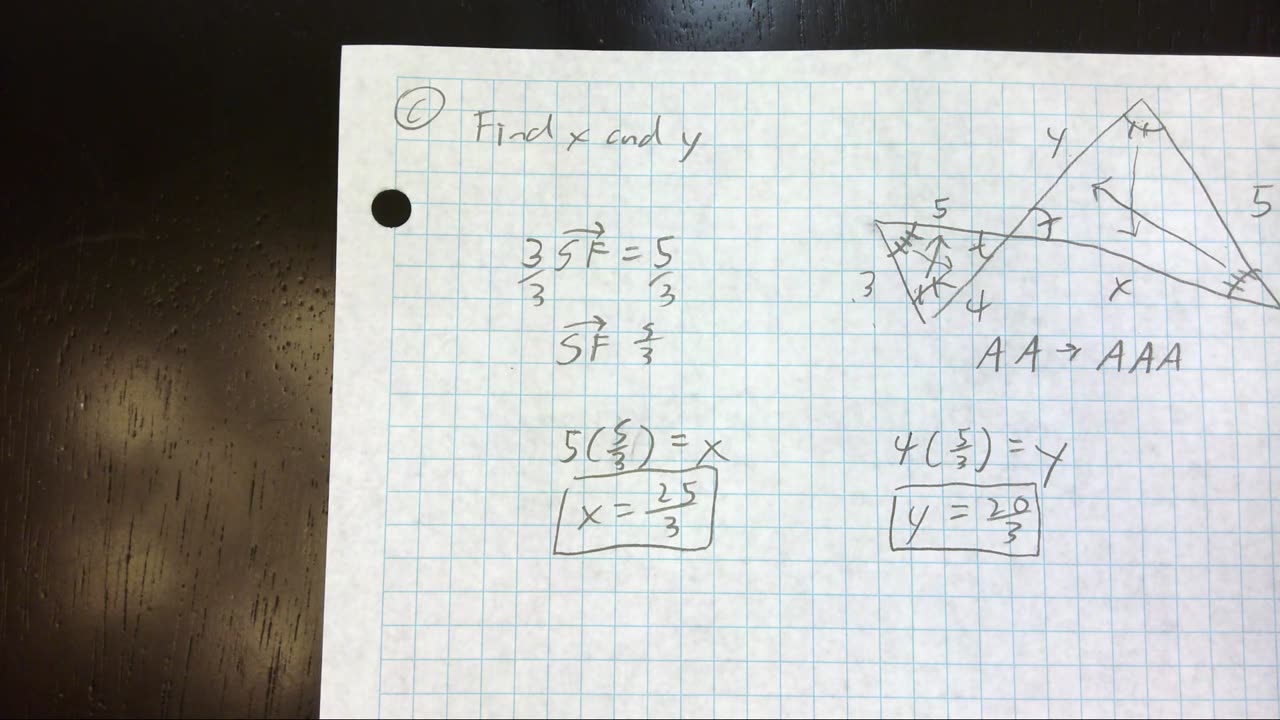 C Find x and y
3 SF = 5
3 3
SF 5/3
5(5/3) = x
x = 25/3
y
5
5
3
4
x
AA → AAA
4(5/3) = y
y = 20/3